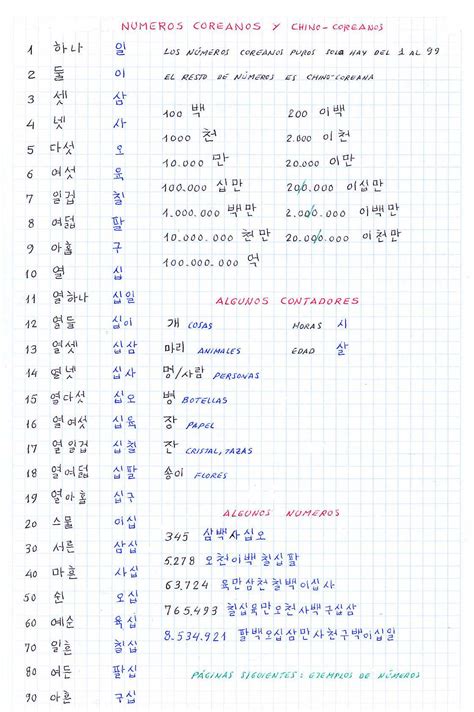 NUMEROS COREANOS Y CHINO-COREANOS
1 하나 일
2 둘 이
3 셋 삼
4 넷 사
5 다섯 오
6 여섯 육
7 일곱 칠
8 여덟 팔
9 아홉 구
10 열 십
11 열하나 십일
12 열둘 십이
13 열셋 십삼
14 열넷 십사
15 열다섯 십오
16 열여섯 십육
17 열일곱 십칠
18 열여덟 십팔
19 열아홉 십구
20 스물 이십
30 서른 삼십
40 마흔 사십
50 쉰 오십
60 예순 육십
70 일흔 칠십
80 여든 팔십
90 아흔 구십
LOS NÚMEROS COREANOS PUROS SOLO HAY DEL 1 AL 99
EL RESTO DE NÚMEROS ES CHINO-COREANA
100 백 200 이백
1000 천 2.000 이천
10.000 만 20.000 이만
100.000 십만 200.000 이십만
1.000.000 백만 2.000.000 이백만
10.000.000 천만 20.000.000 이천만
100.000.000 억
ALGUNOS CONTADORES
개 COSAS HORAS 시
마리 ANIMALES EDAD 살
명/사람 PERSONAS
병 BOTELLAS
장 PAPEL
잔 CRISTAL, TAZAS
송이 FLORES
ALGUNOS NUMEROS
345 삼백사십오
5.278 오천이백칠십팔
63.724 육만삼천칠백이십사
765.493 칠십육만오천사백구십삼
8.534.921 팔백오십삼만사천구백이십일
PÁGINAS SIGUIENTES: EJEMPLOS DE NÚMEROS